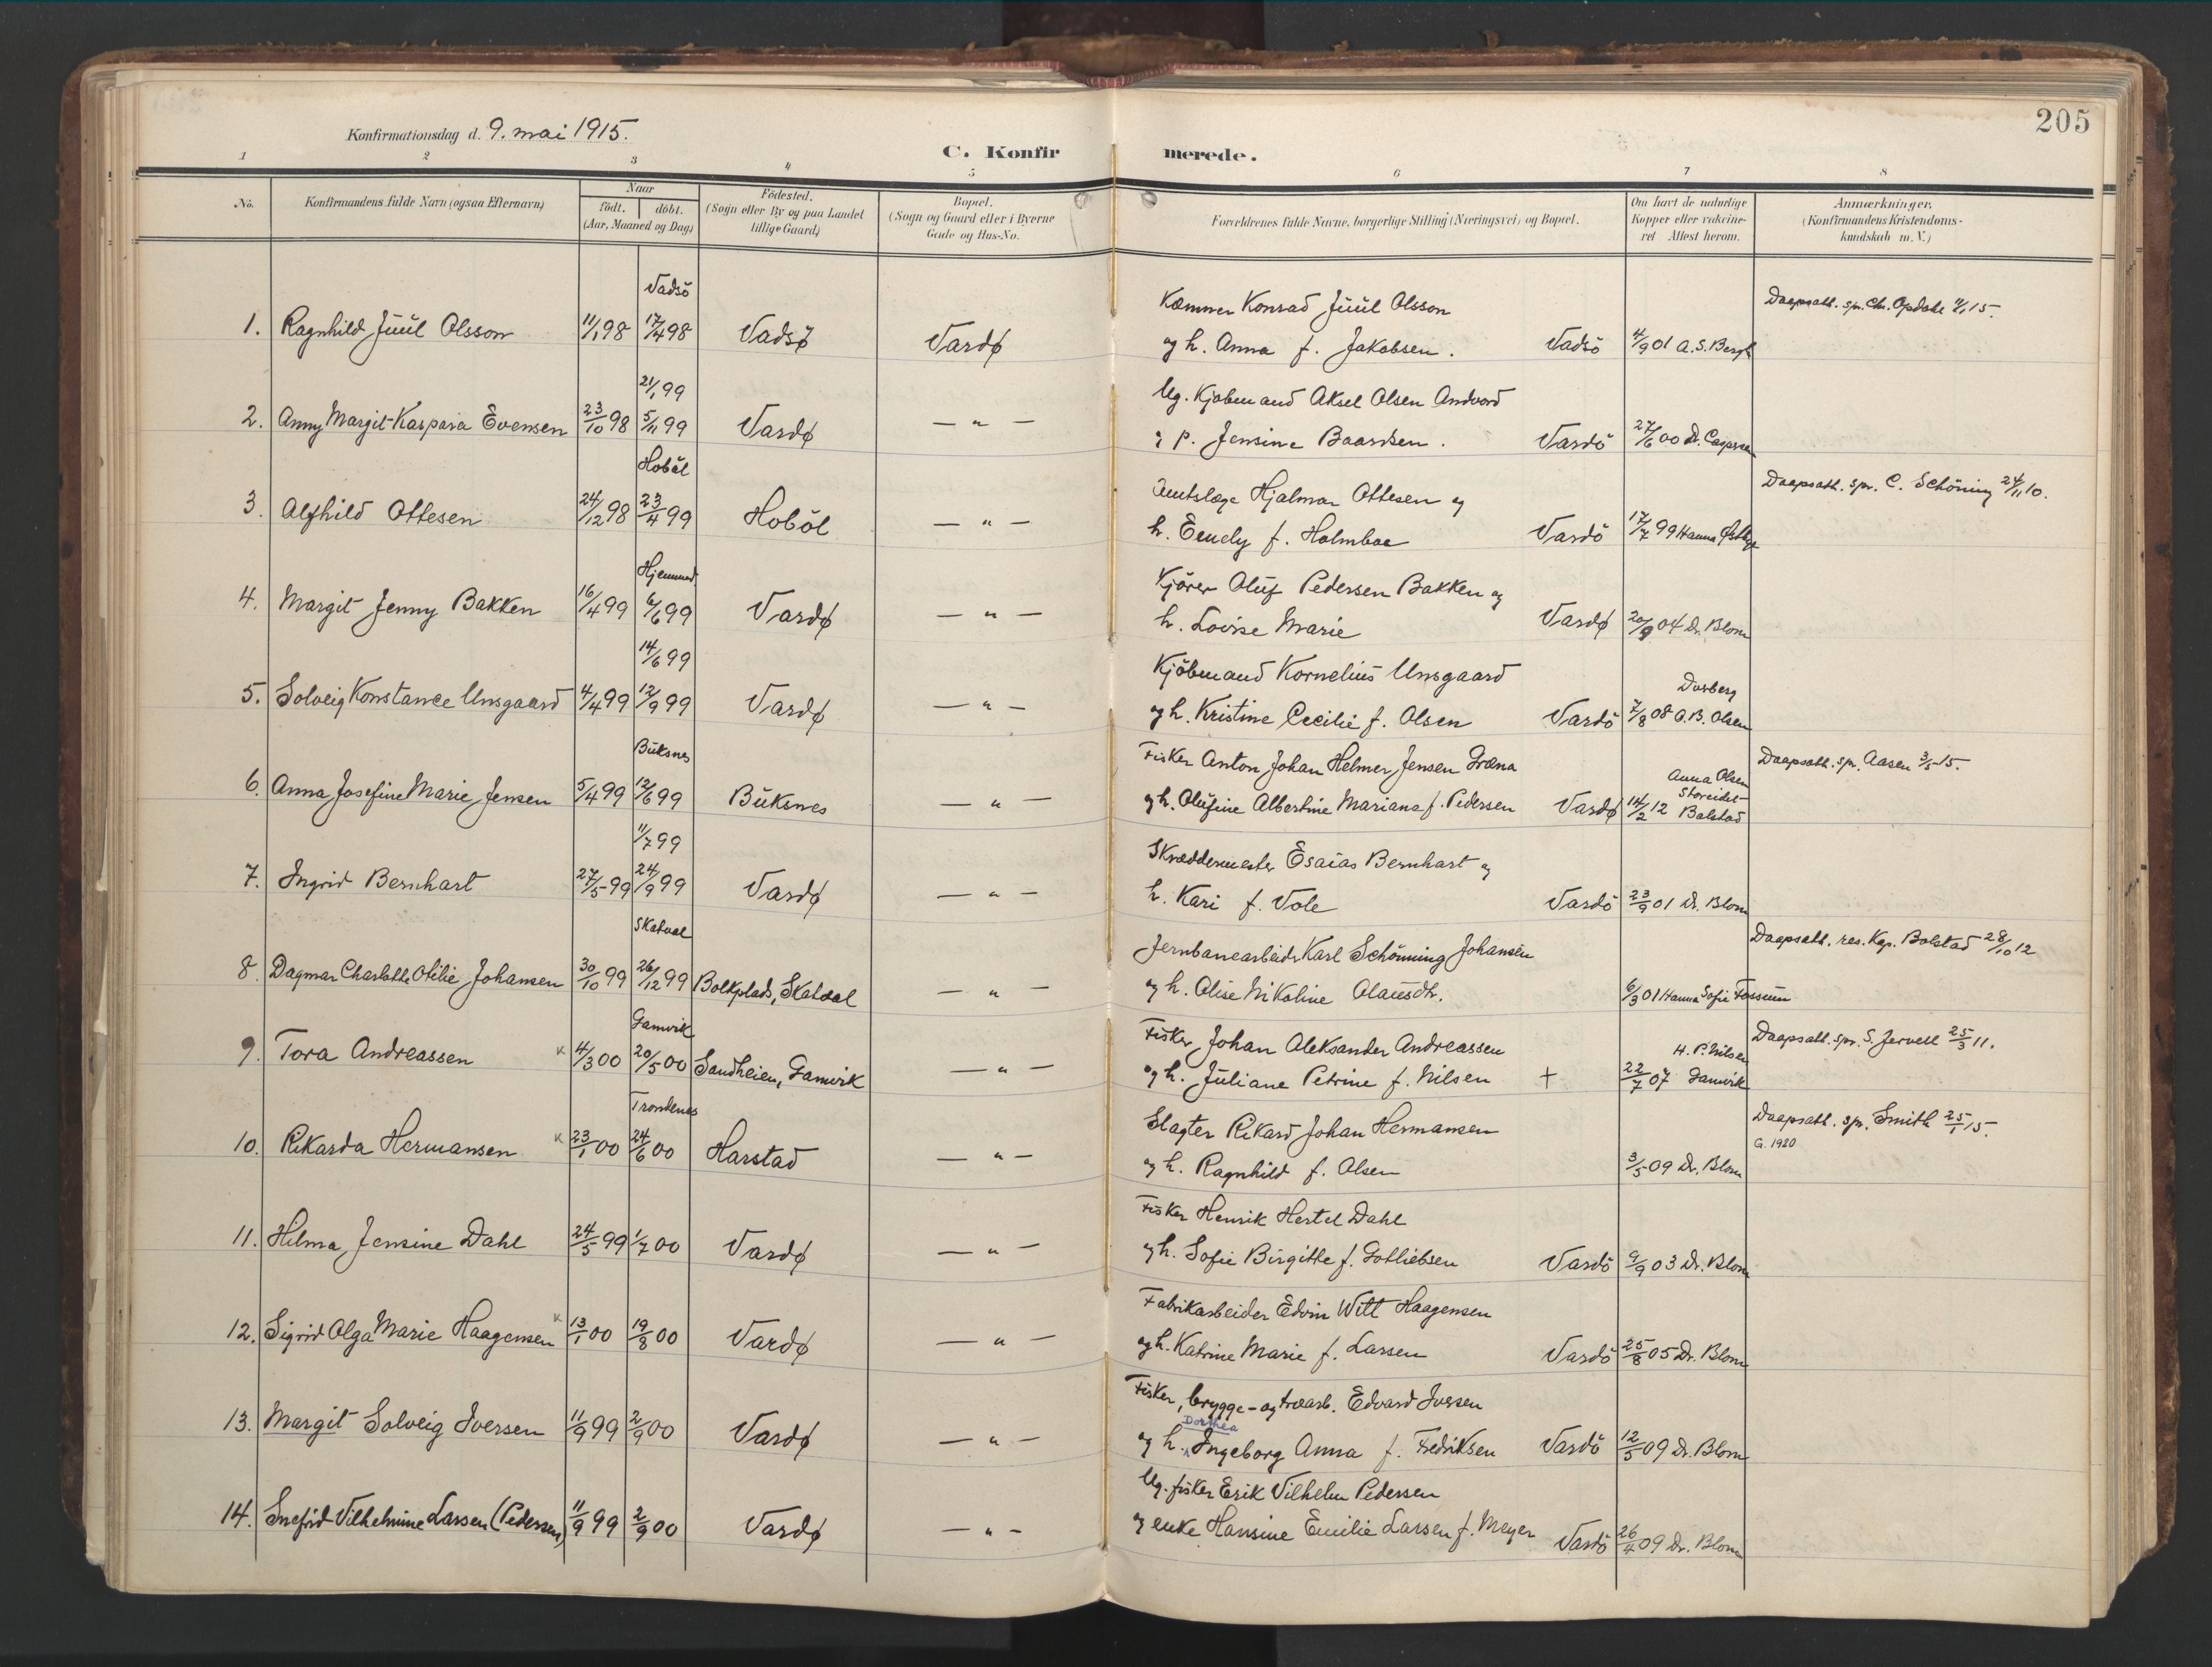 205
Konfirmationsdag d. 9. mai 1915.
C. Konfirmerede.
1 2 3 4 5 6 7 8
No. Konfirmandens fulde Navn (ogsaa Efternavn) Naar født. døbt. (Aar, Maaned og Dag) Fødested. (Sogn eller By og paa Landet tillige Gaard) Bopæl. (Sogn og Gaard eller i Byerne Gade og Hus-No. Forældrenes fulde Navne, borgerlige Stilling (Næringsvei) og Bopæl. Om havt de naturlige Kopper eller vakcineret Attest herom. Anmærkninger. (Konfirmandens Kristendomskundskab m. V.)
Vadsö Kæmner Konrad Juul Olsson Daapsatt. spr. Ch. Opdahl 15.
1. Ragnhild Juul Olsson 11/1 98 17/4 98 Vadsø Vardø og h. Anna f. Jakobsen. Vadsö 4/9 01 A.S. Bergh
21/1 99 Ug. Kjøbmand Aksel Olsen Andvord
2. Anny Margit Kaspara Evensen 23/10 98 5/11 99 Vardø — " — p. Jensine Baardsen. Vardö 27/6 00 Dr. Caspersen
Hobøl Amtslæge Hjalmar Ottesen og Daapsatt. spr. C. Schöning 24/11 10.
3. Alfhild Ottesen 24/12 98 23/4 99 Hobøl — " — h. Emely f. Holmboe Vardö 17/7 99 Hanna
Hjemmed. Kjører Oluf Pedersen Bakken og
4. Margit Jenny Bakken 16/4 99 6/6 99 Vardø — " — h. Lovise Marie Vardø 20/9 04 Dr. Blom
14/6 99 Kjøbmand Kornelius Unsgaard
5. Solveig Konstance Unsgaard 4/4 99 12/9 99 Vardø — " — og h. Kristine Cecilie f. Olsen Vardö Dverberg 7/8 08 A.B. Olsen
Buksnes Fisker Anton Johan Helmer Jensen Græna Daapsatt. spr. Aasen 3/5 15.
6. Anna Josefine Marie Jensen 5/4 99 12/6 99 Buksnes — " — og h. Olufine Albertine Mariana f. Pedersen Vardø Anna Olsen Storeidet 14/2 12 Balstad
11/7 99 Skræddermester Esaias Bernhart og
7. Ingrid Bernhart 27/5 99 24/9 99 Vardø — " — h. Kari f. Vole Vardö 23/9 01 Dr. Blom
Skatval Jernbanearbeider Karl Schønning Johansen Daapsatt. res. Kap. Bolstad 28/10 12
8. Dagmar Charlotte Otilie Johansen 30/10 99 26/12 99 Bolkplads, Skatval — " — og h. Olise Nikoline Olausdtr. 6/3 01 Hanna Sofie Fossum
Gamvik Fisker Johan Aleksander Andreassen Daapsatt. spr. S. Jervell 25/3 11.
9. Tora Andreassen x 4/3 00 20/5 00 Sandheien, Gamvik — " — og h. Juliane Petrine f. Nilsen + H. P. Nilsen 22/7 07 Gamvik
Trondenes Slagter Rikard Johan Hermansen Daapsatt. spr. Smith 25/1 15.
G. 1920
10. Rikarda Hermansen x 23/1 00 24/6 00 Harstad — " — og h. Ragnhild f. Olsen 3/5 09 Dr. Blom
Fisker Henrik Hertel Dahl
11. Hilma Jensine Dahl 24/5 99 1/7 00 Vardø — " — og h. Sofie Birgitte f. Gotliebsen Vardö 9/9 03 Dr. Blom
Fabrikarbeider Edvin Witt Haagensen
12. Sigrid Olga Marie Haagensen x 13/1 00 19/8 00 Vardø — " — og h. Katrine Marie f. Larsen Vardö 25/8 05 Dr. Blom
Fisker, brygge- og træarb. Edvard Iversen
Dorthea
13. Margit Solveig Iversen 11/9 99 2/9 00 Vardø — " — og h. Ingeborg Anna f. Fredriksen Vardö 12/5 09 Dr. Blom
Ug. fisker Erik Vilhelm Pedersen
14. Snefrid Vilhelmine Larsen (Pedersen) 11/9 99 2/9 00 Vardø — " — og enke Hansine Emilie Larsen f. Meyer Vardö 26/4 09 Dr. Blom